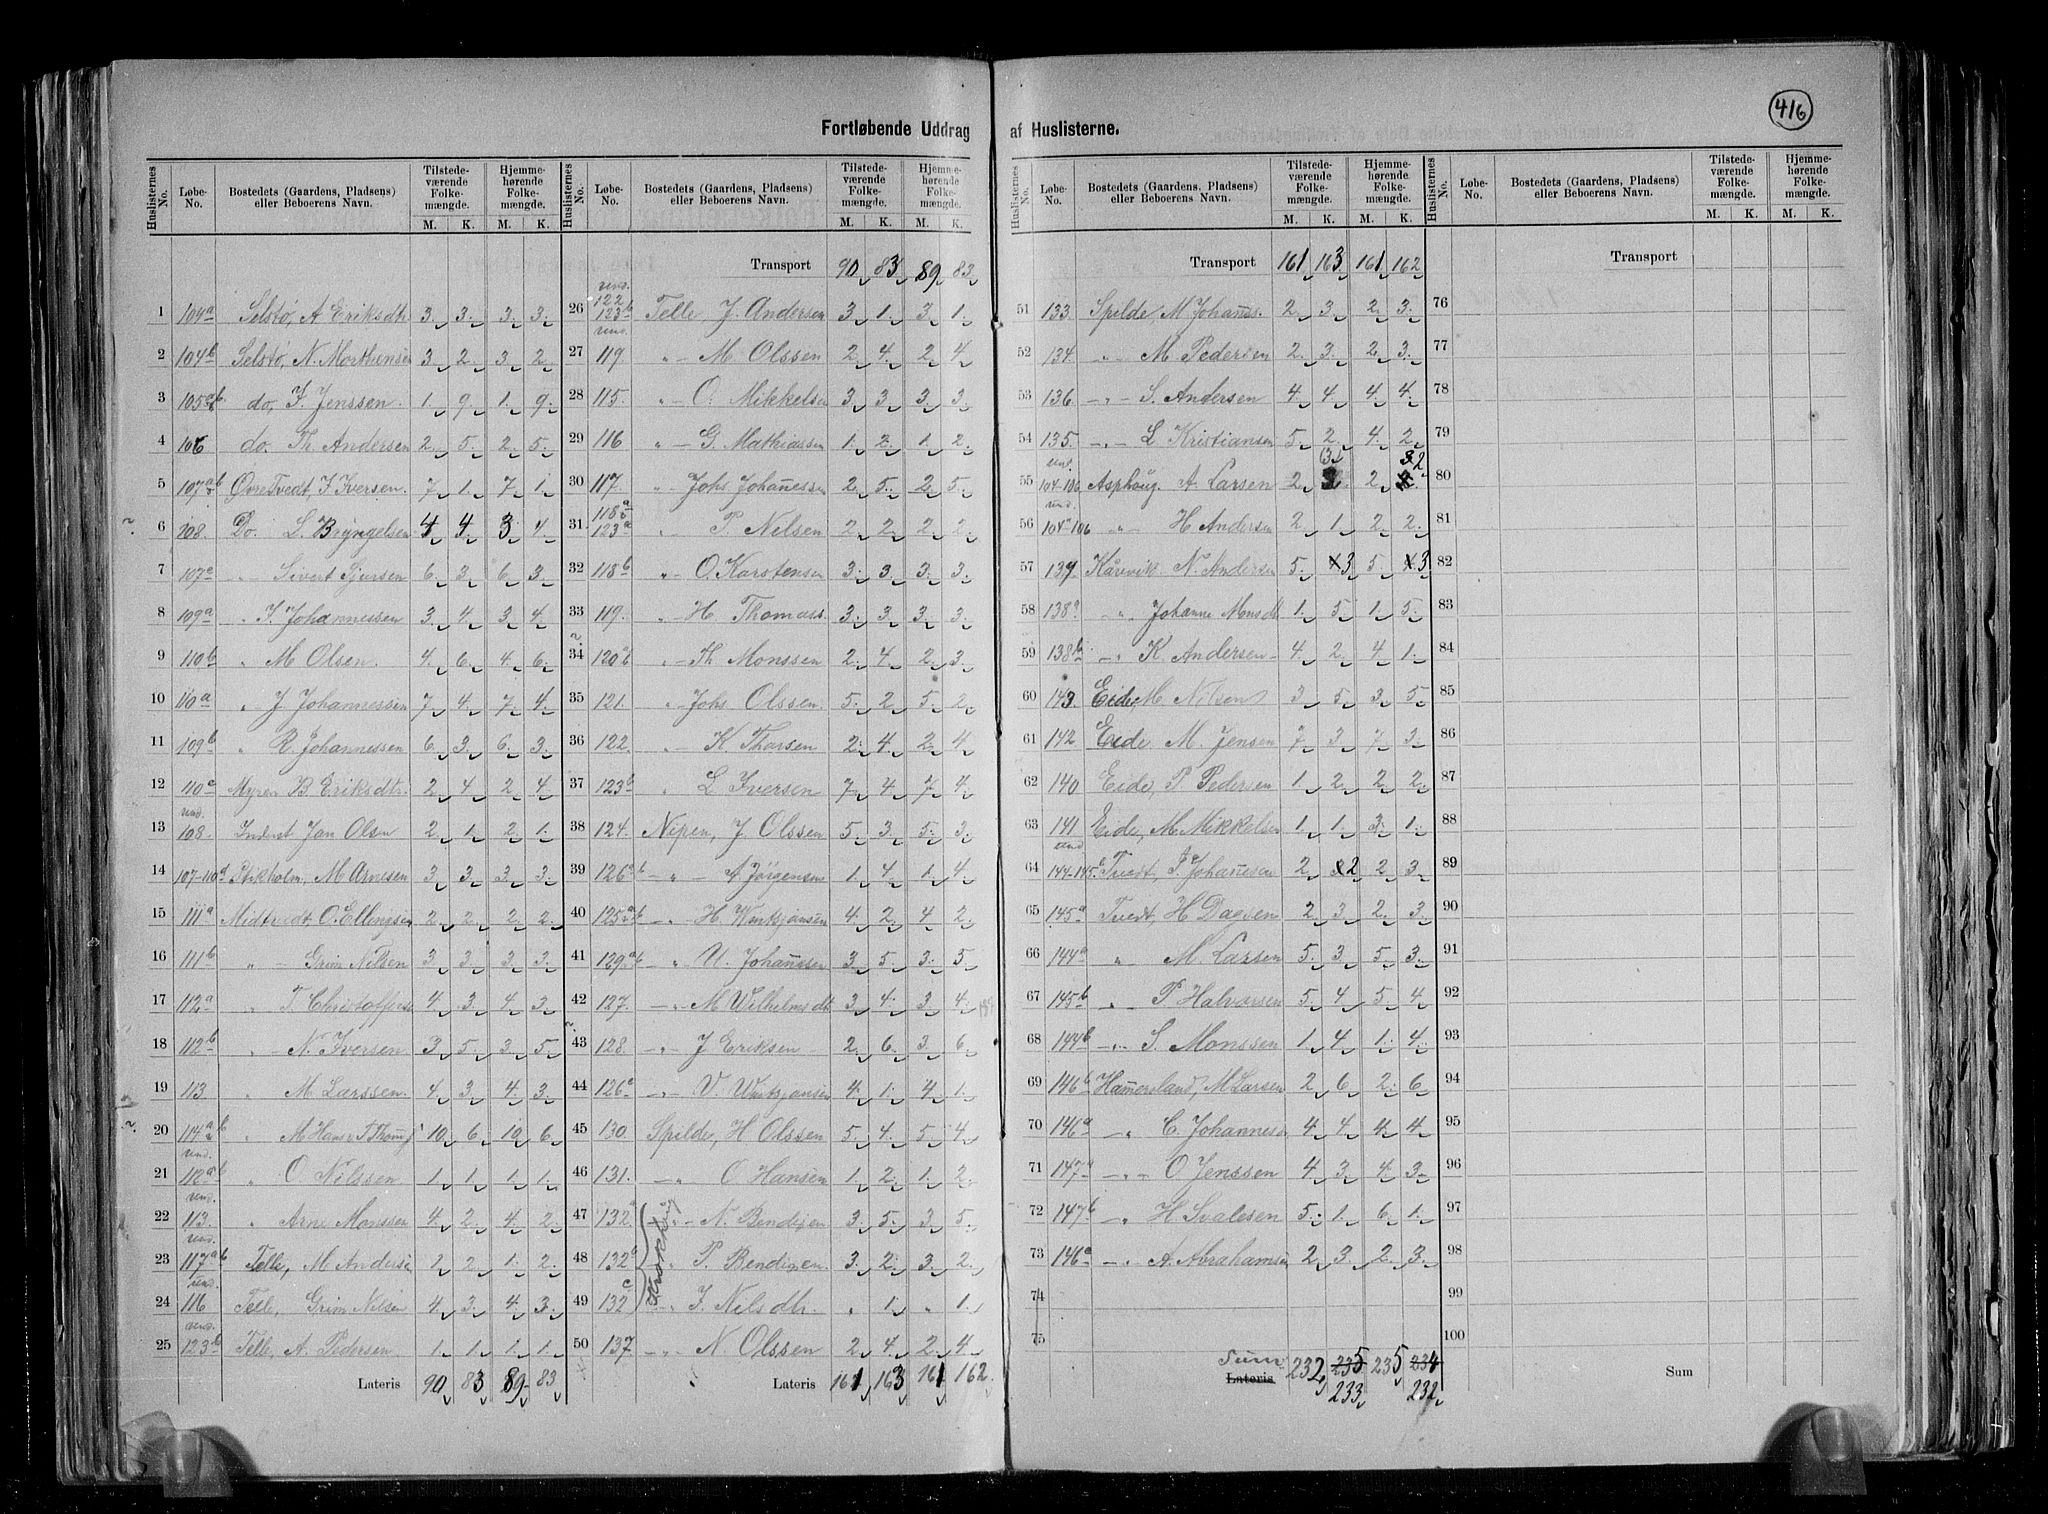 416
Fortløbende Uddrag af Huslisterne.
Huslisternes No. Løbe-No. Bostedets (Gaardens, Pladsens) eller Beboerens Navn. Tilstedeværende Folkemængde. M. K. Hjemmehørende Folkemængde. M. K.
1 104a Selstø, A Eriksdtr. 3. 3. 3. 3.
2 104b Selstø, N. Morthensen 3. 2. 3. 2.
3 105ab do, I. Jenssen. 1. 9. 1. 9.
4 106 do. Th. Andersen 2. 5. 2. 5.
5 107ab Øvre Tvedt, I Iversen. 7. 1. 7. 1.
6 108. Do. L. Bryngelsen 4 4. 3. 4.
7 107c " Sivert 6. 3. 6. 3.
8 109a " I. Johannessen 3. 4. 3. 4.
9 110b " M Olsen. 4. 6. 4. 6.
10 110a " J. Johannessen 7. 4. 7. 4.
11 109b " R. Johannessen 6. 3. 6. 3.
12 110c Myren B Eriksdtr. 2. 4. 2. 4.
13 und. 108. Jan Olsn 2. 1. 2. 1.
14 107-110d M Arnesen 3. 3. 3. 3.
15 111a Midtvedt, O. Ellingsen 2. 2. 2. 2.
16 111b " Grim Nilsen 3. 3. 3. 3.
17 112a " T Christoffersen 4. 3. 4. 3.
18 112b " N. Iversen 3. 5. 3. 5.
19 113. " M Larssen. 4. 3. 4. 3.
20 114ab " M Hans 10. 6. 10. 6.
21 und. 112ab " O Nilssen 1. 1. 1. 1.
22 und. 113. " Arne Monssen 4. 2. 4. 2.
23 und. 117ab Telle, M Andersen 1. 2. 1. 2.
24 und. 116 Telle, Grim Nilsen 4. 3. 4. 3.
25 und. 123b Telle, A. Pedersen 1. 1. 1. 1.
Lateris 90 83 89 83
Huslisternes No. Løbe-No. Bostedets (Gaardens, Pladsens) eller Beboerens Navn. Tilstedeværende Folkemængde. M. K. Hjemmehørende Folkemængde. M. K.
Transport 90 83 89 83
26 und. 122 123b Telle, J. Andersen 3 1. 3. 1.
27 und. 119. " M. Olssen 2. 4. 2. 4
28 115. " O. Mikkelsen 3. 3. 3. 3.
29 116 " G. Mathiassen 1. 2. 1. 2.
30 117. " Johs Johannessen 2. 5. 2. 5.
31 118a 123a " P. Nilsen 2. 2. 2. 2.
32 118b " O. Karstensen 3. 3. 3. 3.
33 119. " H Thomass. 3. 3. 3. 3.
34 120ab " Th. Monssen 2. 4. 2. 3.
35 121. " Johs Olssen. 5. 2. 5. 2.
36 122. " K Thorsen 2. 4. 2. 4
37 123b " L Iversen 7. 4. 7. 4.
38 124. Nepen, J. Olssen 5. 3. 5. 3.
39 126ab " A Jörgensen 1. 4. 1. 4.
40 125ab " H. 4. 2. 4 2.
41 129 " U. Johannsen 3. 5. 3. 5.
42 127. " M Wilhelmsdtr 3. 4. 3. 4.
43 128. " J Eriksen 2. 6. 3. 6.
44 126c " V. 4. 1. 4. 1.
45 130. Spilde, H Olssen 5. 4. 5. 4.
46 131. " O Hansen 1. 2. 1. 2.
47 132a " N. Bendixen 3. 5. 3. 5.
48 132b " P. Bendixen. 3. 2. 3. 2.
49 132c " I. Nilsdtr. " 1. " 1.
50 137. " N. Olssen 2. 4. 2. 4
Lateris 161 163 161 162.
Huslisternes No. Løbe-No. Bostedets (Gaardens, Pladsens) eller Beboerens Navn. Tilstedeværende Folkemængde. M. K. Hjemmehørende Folkemængde. M. K.
Transport 161 163 161 162
51 133. Spilde, M Johannss. 2. 3. 2. 3.
52 134. " M Pedersen 2. 3. 2. 3.
53 136. " S. Andersen 4. 4. 4. 4.
54 135. " L Kristiansen 5. 2. 4. 2.
55 und. 104-106 Asphaug. A Larsen 2. 3 2. 2
56 und. 104-106 " H Andersen 2. 1. 2. 2.
57 139 Kårevik N. Andersen 5. 3 5. 3
58 138a " Johanne Monsdtr 1. 5. 1. 5.
59 138b " K. Andersen 4. 2. 4. 1.
60 143. Eide, M. Nilsen 3 5. 3. 5
61 142 Eide, M. Jensen 7. 3. 7. 3.
62 140 Eide, P. Pedersen 1. 2. 2. 2.
63 141 Eide, M. Mikkelsen 1. 1. 3. 1.
64 und 144-145c Tvedt, P. Johannesen 2 2 2. 3.
65 145a Tvedt, H Dagsen 2. 3. 2. 3.
66 144a " M Larsen 5. 3. 5. 3.
67 145b " P Halvorsen 5. 4. 5. 4
68 144b " S. Monssen 1. 4. 1. 4.
69 146b Hammersland, M Larsen 2. 6. 2. 6.
70 146a " C. Johannesen 4. 4. 4. 4.
71 147a " O Jenssen 4. 3. 4. 3.
72 147b " H Svalesen 5. 1. 6. 1.
73 146a " A. Abrahamsen 2. 3. 2. 3.
74
75
Sum Lateris 232 235 235 234
233 232
Huslisternes No. Løbe-No. Bostedets (Gaardens, Pladsens) eller Beboerens Navn. Tilstedeværende Folkemængde. M. K. Hjemmehørende Folkemængde. M. K.
Transport
76
77
78
79
80
81
82
83
84
85
86
87
88
89
90
91
92
93
94
95
96
97
98
99
100
Sum